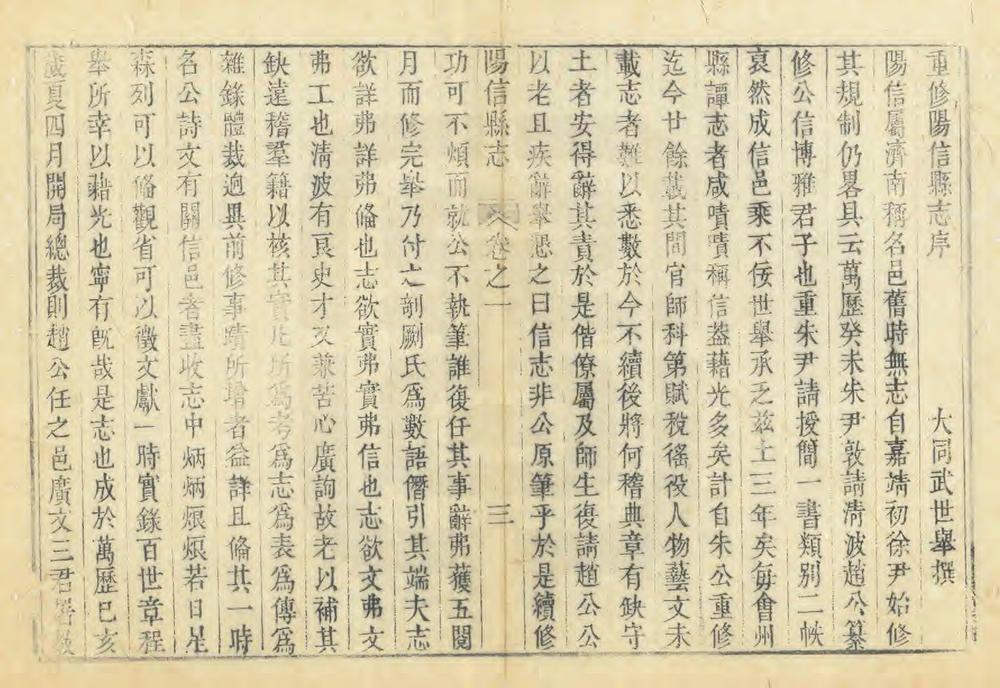 重修陽信縣志序
大同武世舉撰
陽信屬濟南稱名邑舊時無志自嘉靖初徐尹始修
其規制仍畧具云萬歷癸未朱尹敦請清波趙公纂
修公信博雅君子也重朱尹請授簡一書類别二帙
裒然成信邑乘不佞世舉承乏兹土三年矣每會州
縣譚志者咸嘖嘖稱信葢藉光多矣計自朱公重修
迄今廿餘載其間官師科第賦稅徭役人物藝文未
載志者難以悉數於今不續後將何稽典章有缺守
土者安得辭其責於是偕僚屬及師生復請趙公公
以老且疾辭舉懇之曰信志非公原筆乎於是續修
陽信縣志 卷之一 三
功可不煩而就公不執筆誰復任其事辭弗獲五閱
月而修完舉乃付之剞劂氏爲數語僭引其端夫志
欲詳弗詳弗俻也志欲實弗實弗信也志欲文弗文
弗工也清波有良史才又兼苦心廣詢故老以補其
缺遠稽羣籍以核其實凡所爲考爲志爲表爲傳爲
雜錄體裁逈異前修事蹟所增者益詳且俻其一時
名公詩文有關信邑者盡收志中炳炳烺烺若日星
森列可以俻觀省可以徵文獻一時實錄百世章程
舉所幸以藉光也寧有旣哉是志也成於萬歷巳亥
歲夏四月開局總裁則趙公任之邑廣文三君署教